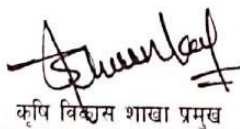 कृषि विकास शाखा प्रमुख